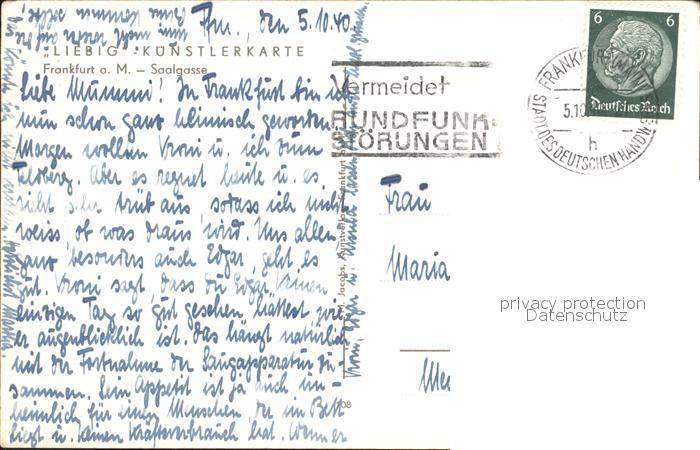 Ffm., den 5.10.40.
"LIEBIG"-KÜNSTLERKARTE
Frankfurt a. M. – Saalgasse
Liebe Mummi! In Frankfurt bin ich
nun schon ganz heimisch geworden.
Morgen wollen Vroni u. ich zum
Feldberg. Aber es regnet heute u. es
sieht sehr trüb aus, sodass ich nicht
weiss, ob was draus wird. Uns allen,
ganz besonders auch Edgar, geht es
gut. Vroni sagt, dass du Edgar keinen
einzigen Tag so gut gesehen hättest, wie
er augenblicklich ist. Das hängt natürlich
mit der Fortnahme der Saugapparatur zu-
sammen. Sein Appetit ist ja auch un-
heimlich für einen Menschen, der im Bett
liegt u. keinen Kräfteverbrauch hat. Wenn er
Jacobs, Kunstverlag, Frankfurt
08
vermeidet
RUNDFUNK-
STÖRUNGEN
FRANKFURT
5.10
h
STADT DES DEUTSCHEN HANDW
6 6
Deutsches Reich
Frau
Maria
privacy protection
Datenschutz